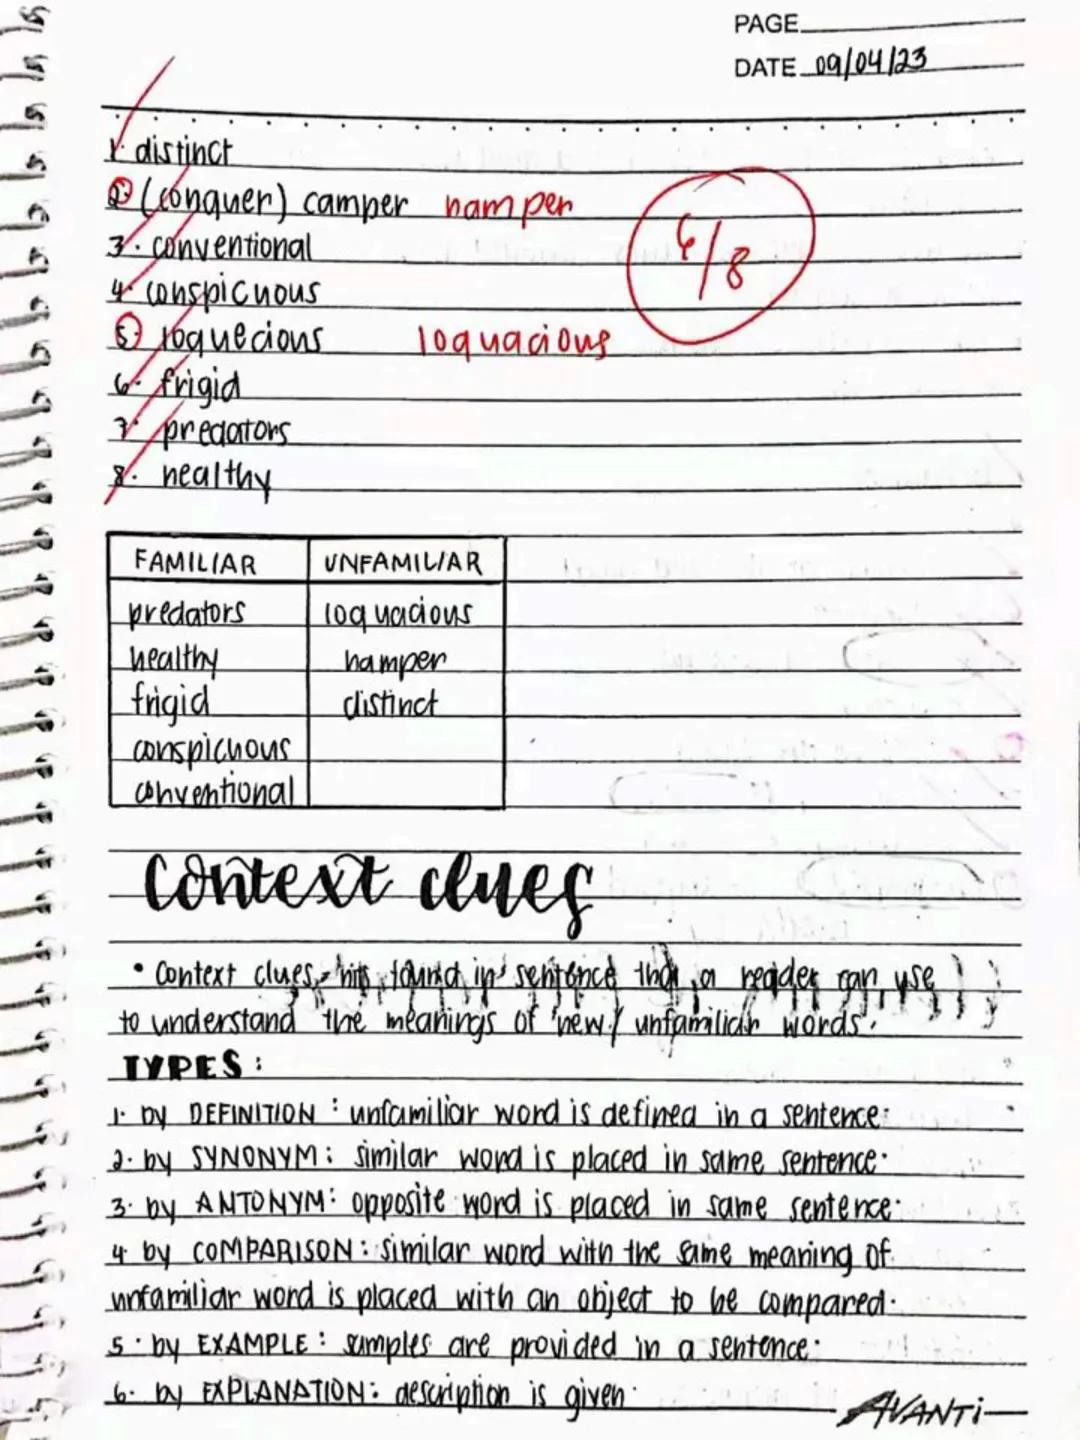 PAGE
DATE 09/04/23
1. distinct
2. (conquer) camper hamper
6/8
3. conventional
4. conspicuous
5. loquecious loquacious
6. frigid
7. predators
8. healthy
FAMILIAR UNFAMILIAR
predators loquacious
healthy hamper
frigid distinct
conspicuous
conventional
Context clues
• Context clues - hits found in sentence that a reader can use
to understand the meanings of new/ unfamiliar words.
TYPES:
1. by DEFINITION: unfamiliar word is defined in a sentence.
2. by SYNONYM: similar word is placed in same sentence.
3. by ANTONYM: opposite word is placed in same sentence.
4. by COMPARISON: similar word with the same meaning of
unfamiliar word is placed with an object to be compared.
5. by EXAMPLE: samples are provided in a sentence.
6. by EXPLANATION: description is given.
AVANTi